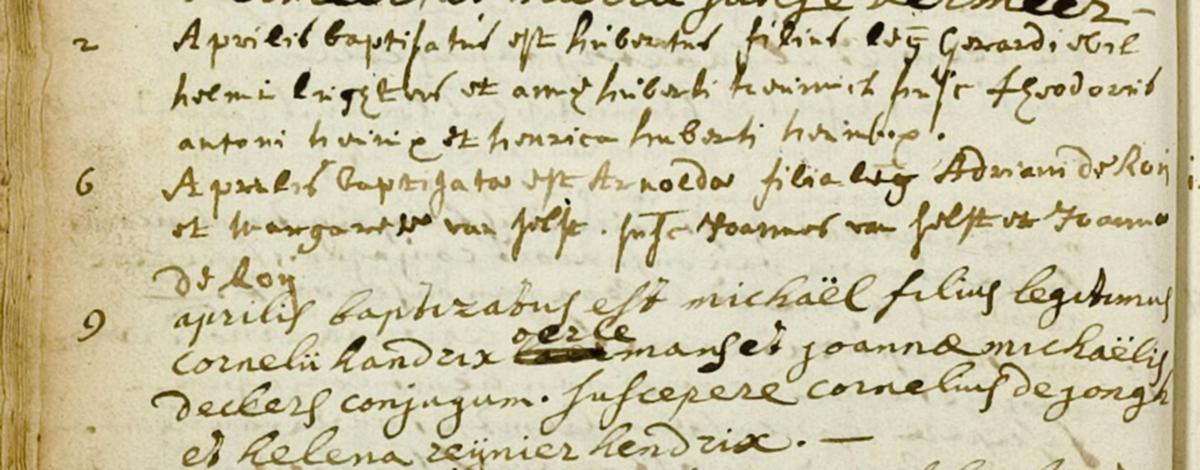 2 Aprilis baptisatus est hubertus filius leg Gerardi wil
helmi et huberti susc theodorus
antoni heinrix et henrica huberti
6 Aprilis baptisata est Arnolda filia leg Adriani de Roij
et margaretæ van helst. susc Joannes van helst et Joanna
de Roij
9 aprilis baptizatus est michaël filius legitimus
cornelii handrix oerlemans et joannæ michaëlis
deckers conjugum. suscepere cornelius de jongh
et helena reijnier hendrix. —